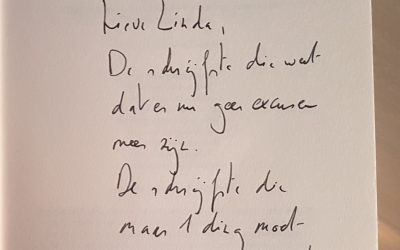 Lieve Linda,
De schrijfster die weet
dat er nu geen excuses
meer zijn.
De schrijfster die
maar 1 ding moet,